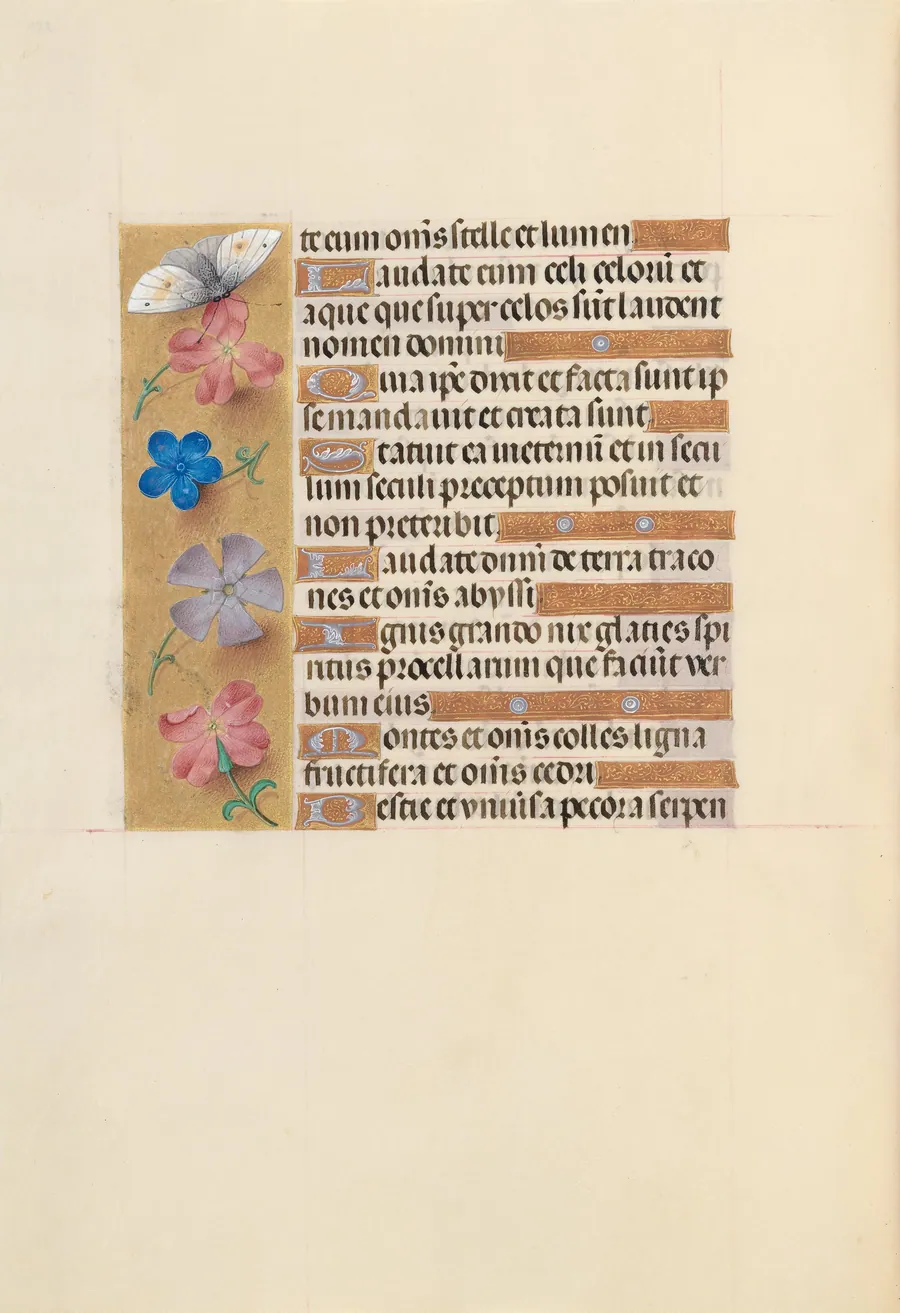 te eum om̅s stelle et lumen
Laudate eum celi celoru̅ et
aque que super celos su̅t laudent
nomen domini
Quia ip̅e dixit et facta sunt ip
se mandavit et creata sunt
Statuit ea in eternu̅ et in secu
lum seculi preceptum posuit et
non preteribit
Laudate dnm̅ de terra traco
nes et om̅s abyssi
Ignis grando nix glacies spi
ritus procellarum que faciu̅t ver
bum eius
Montes et om̅s colles ligna
fructifera et om̅s cedri
Bestie et vniu̅sa pecora serpen